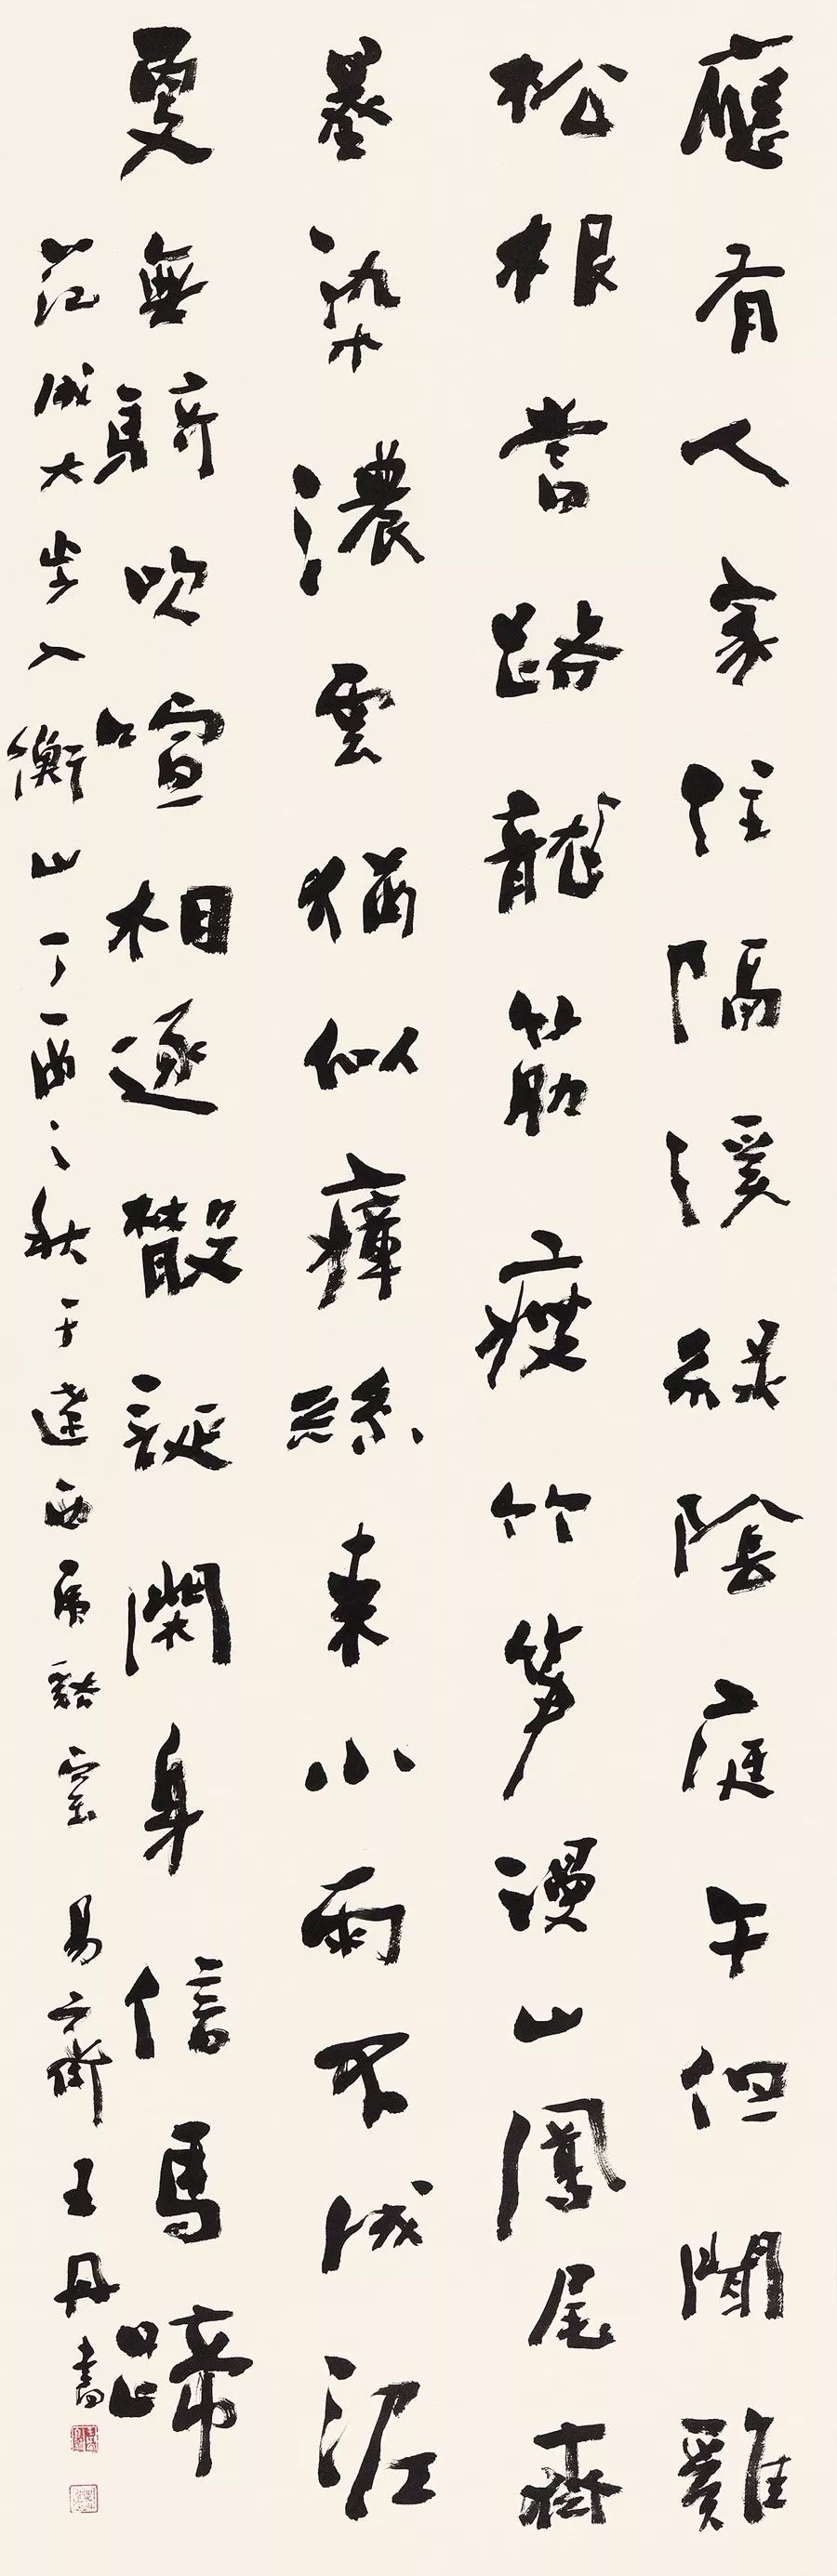 應有人家住隔溪綠陰庭午但聞雞
松根當路龍筋瘦竹筍漫山鳳尾齊
墨染濃雲猶似瘴絲來小雨不成泥
更無騎吹喧相逐散誕閑身信馬蹄
范成大步入衡山丁酉之秋于達西虎谿室易齋王丹書